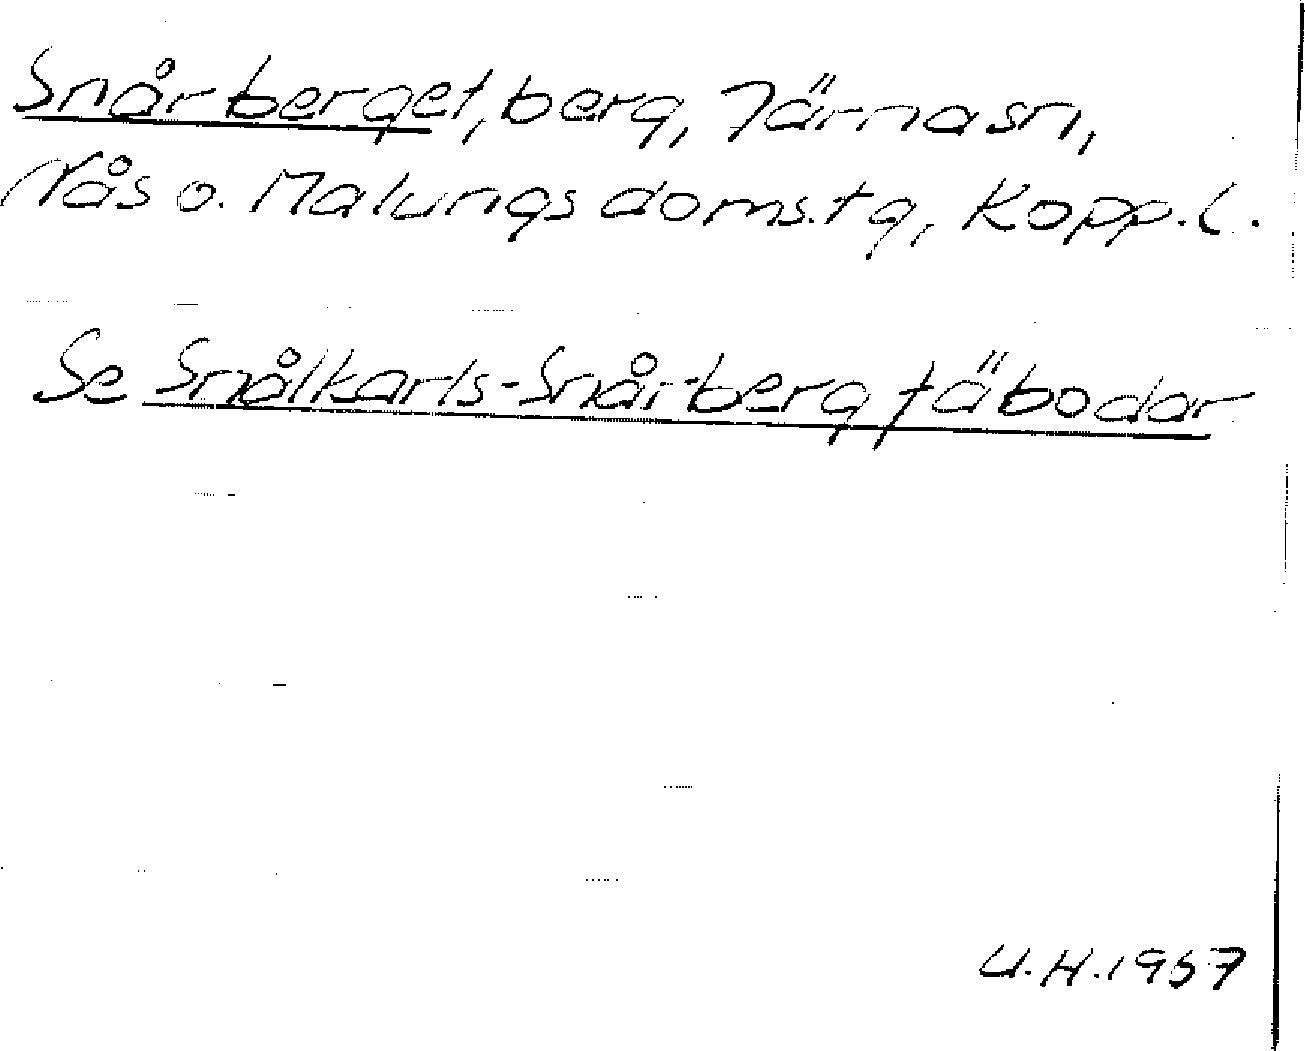 Snårberget, berg, Järna sn,
Nås o. Malungs doms.tg, Kopp.l.
Se Snålkarls-Snårberg fäbodar
U.H. 1957